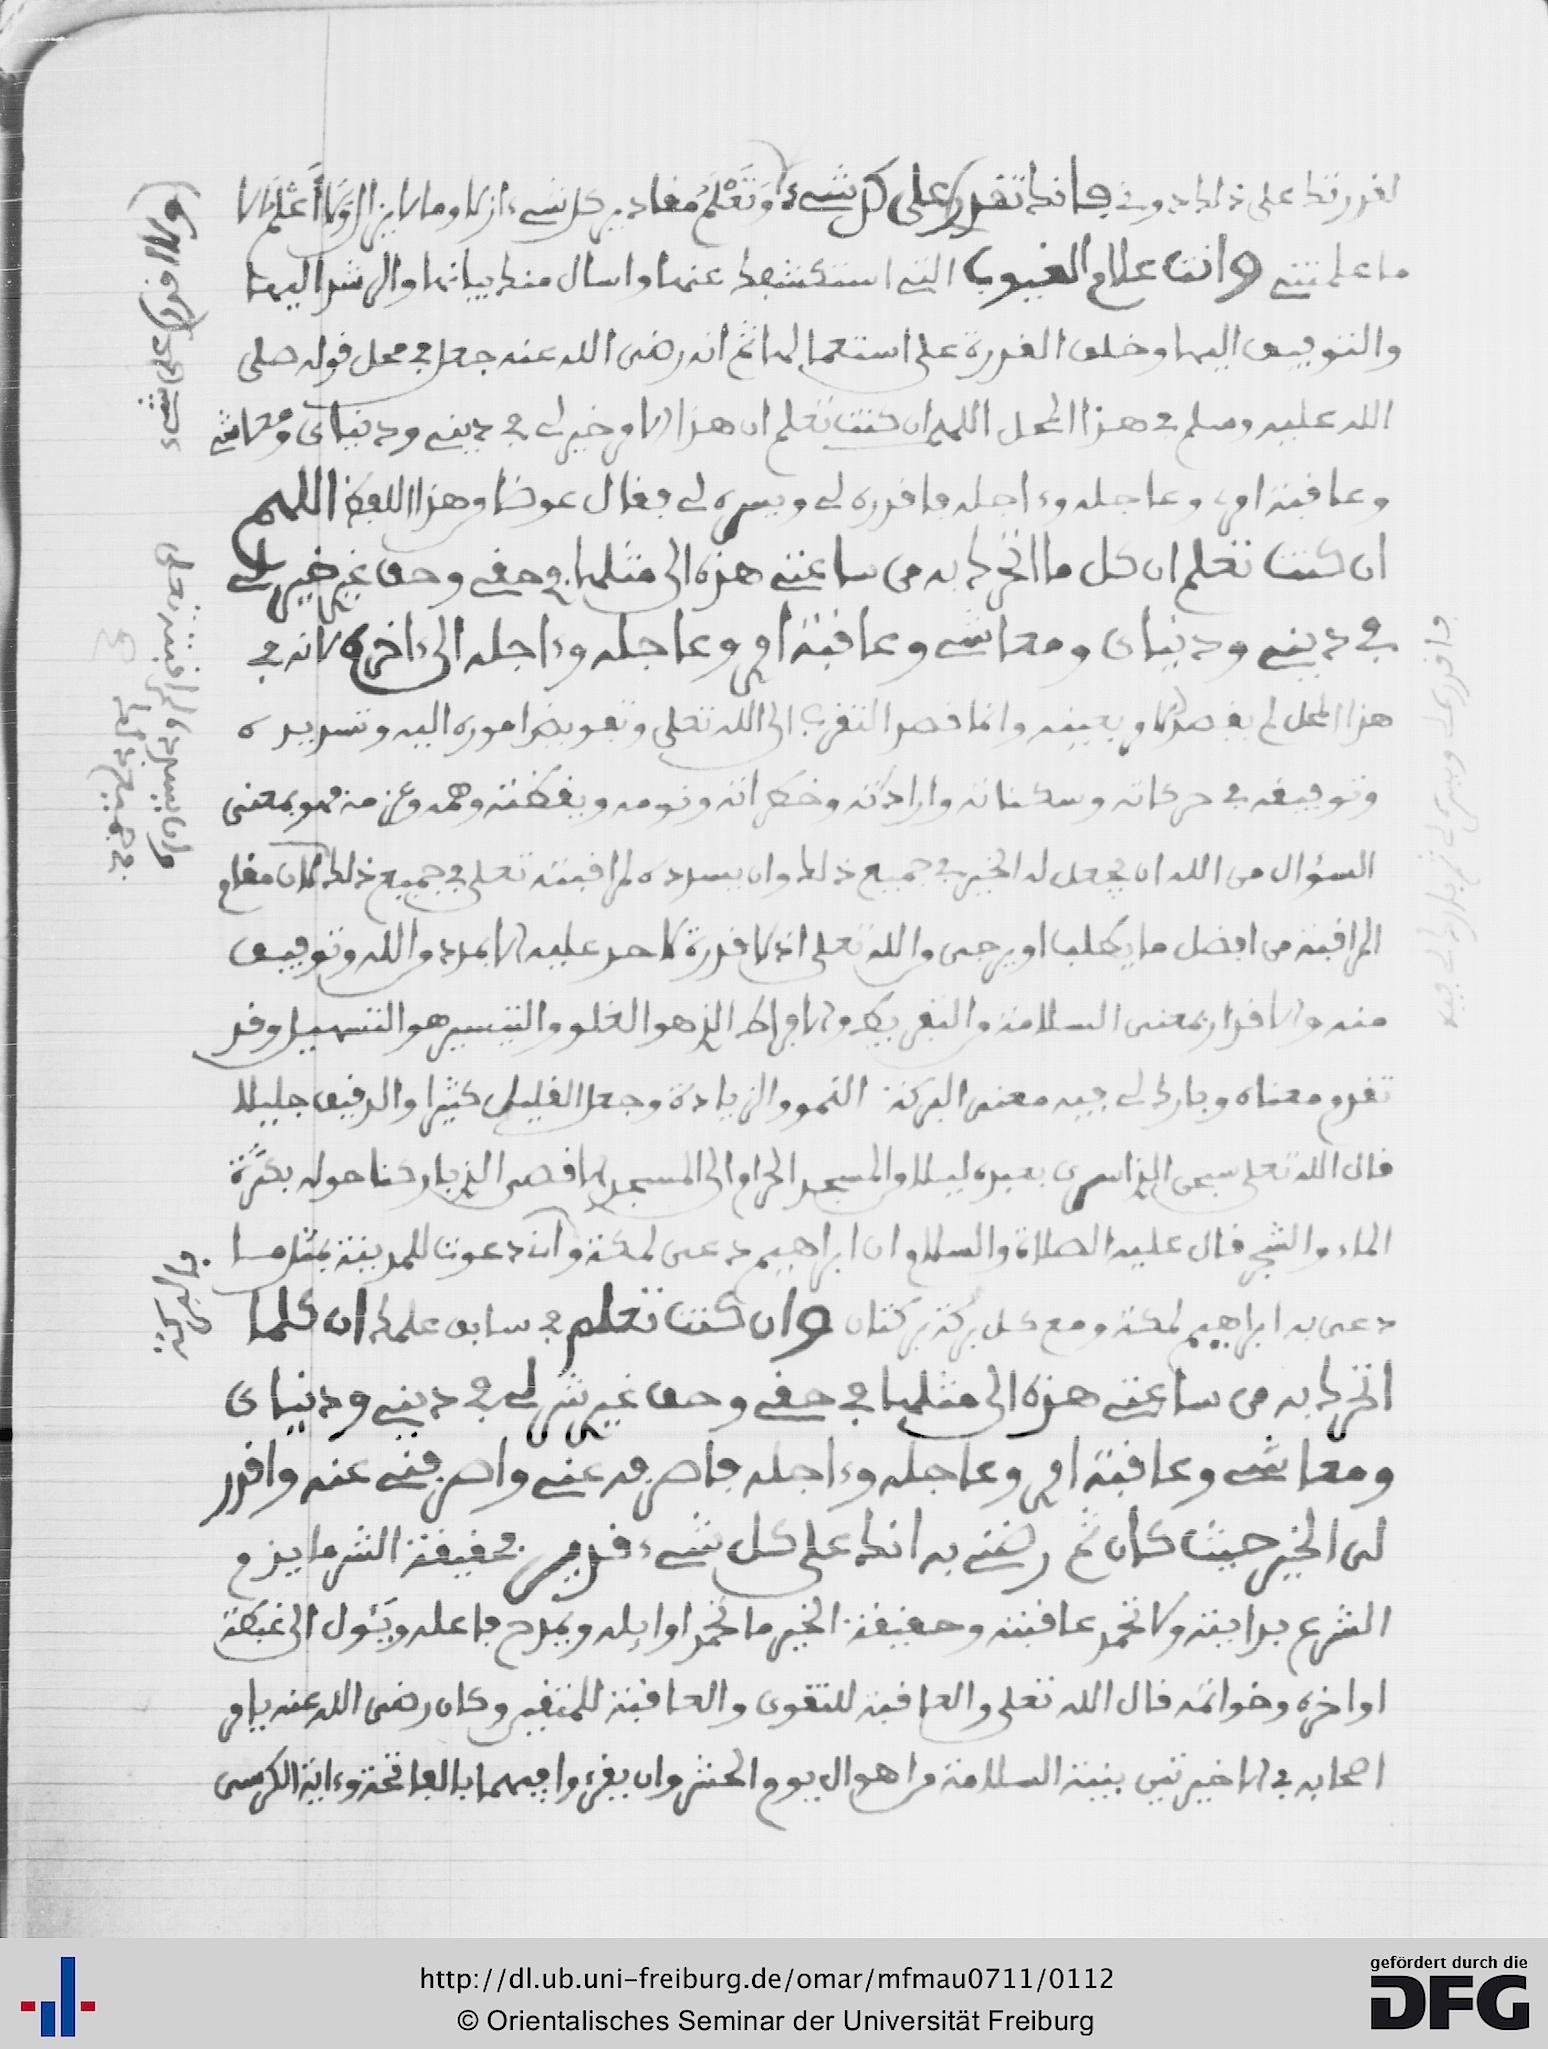 لقدرتك على ذلك دوني فانك تقدر على كل شيء وتعلم مقادير كل شيء ازلا وما لا يزال ولا أعلم الا
ما علمتني وانت علام الغيوب التي استكشفك عنها واسال منك بيانها والرشد اليها
والتوفيق اليها وخلق القدرة على استعمالها ثم انه رضى الله عنه جعل في محل قوله صلى
الله عليه وسلم في هذا المحل اللهم ان كنت تعلم ان هذا الامر خير لي في ديني ودنياى ومعاشي
وعاقبة امري وعاجله وءاجله فاقدره لي ويسره لي فقال عوضا من هذا اللفظ اللهم
ان كنت تعلم ان كل ما اتحرك به من ساعتي هذه الى مثلها في حقي وحق غيري خير لي
في ديني ودنياى ومعاشي وعاقبة امري وعاجله وءاجله الى ءاخره لانه في
هذا المحل لم يقصد امرا بعينه وانما قصد التقرب الى الله تعلى وتفويض اموره اليه وتسديده
وتوفيقه في حركاته وسكناته وارادته وخطراته ونومه ويقظته وهمه وعزمه فهو بمعنى
السؤال من الله ان يجعل له الخير في جميع ذلك وان يسدده لمراقبته تعلى في جميع ذلك لان مقام
المراقبة من افضل ما يطلب او يرجى من الله تعلى اذ لا قدرة لاحد عليه الا بمدد من الله وتوفيق
منه والاقدار بمعنى السلامة من التفريط والافراط الذي هو الغلو والتيسير هو التسهيل وقد
تقدم معناه وبارك لي فيه معنى البركة النمو والزيادة وجعل القليل كثيرا والدقيق جليلا
قال الله تعلى سبحن الذي اسرى بعبده ليلا من المسجد الحرام الى المسجد الاقصى الذي باركنا حوله بكثرة
الماء والشجر قال عليه الصلاة والسلام ان ابراهيم دعى لمكة وان دعوت للمدينة بمثل ما
دعى به ابراهيم لمكة ومع كل بركة بركتان وان كنت تعلم في سابق علمك ان كلما
اتحرك به من ساعتي هذه الى مثلها في حقي وحق غيري شر لي في ديني ودنياى
ومعاشي وعاقبة امري وعاجله وءاجله فاصرفه عني واصرفني عنه واقدر
لى الخير حيث كان ثم رضني به انك على كل شيء قدير فحقيقة الشر ما يذم
الشرع بدايته ولا تحمد عاقبته وحقيقة الخير ما تحمد اوايله ويمدح فاعله ويئول الى غبطة
اواخره وخواتمه قال الله تعلى والعاقبة للتقوى والعاقبة للمتقين وكان رضى الله عنه يامر
اصحابه في الاخيرتين بنية السلامة من اهوال يوم الحشر وان يقرءوا فيهما بالفاتحة وءاية الكرسى
وان يسدده لمراقبته تعلى
في جميع ذلك
فاقدره لي ويسره لي ثم بارك لي فيه
http://dl.ub.uni-freiburg.de/omar/mfmau0711/0112
© Orientalisches Seminar der Universität Freiburg
gefördert durch die
DFG